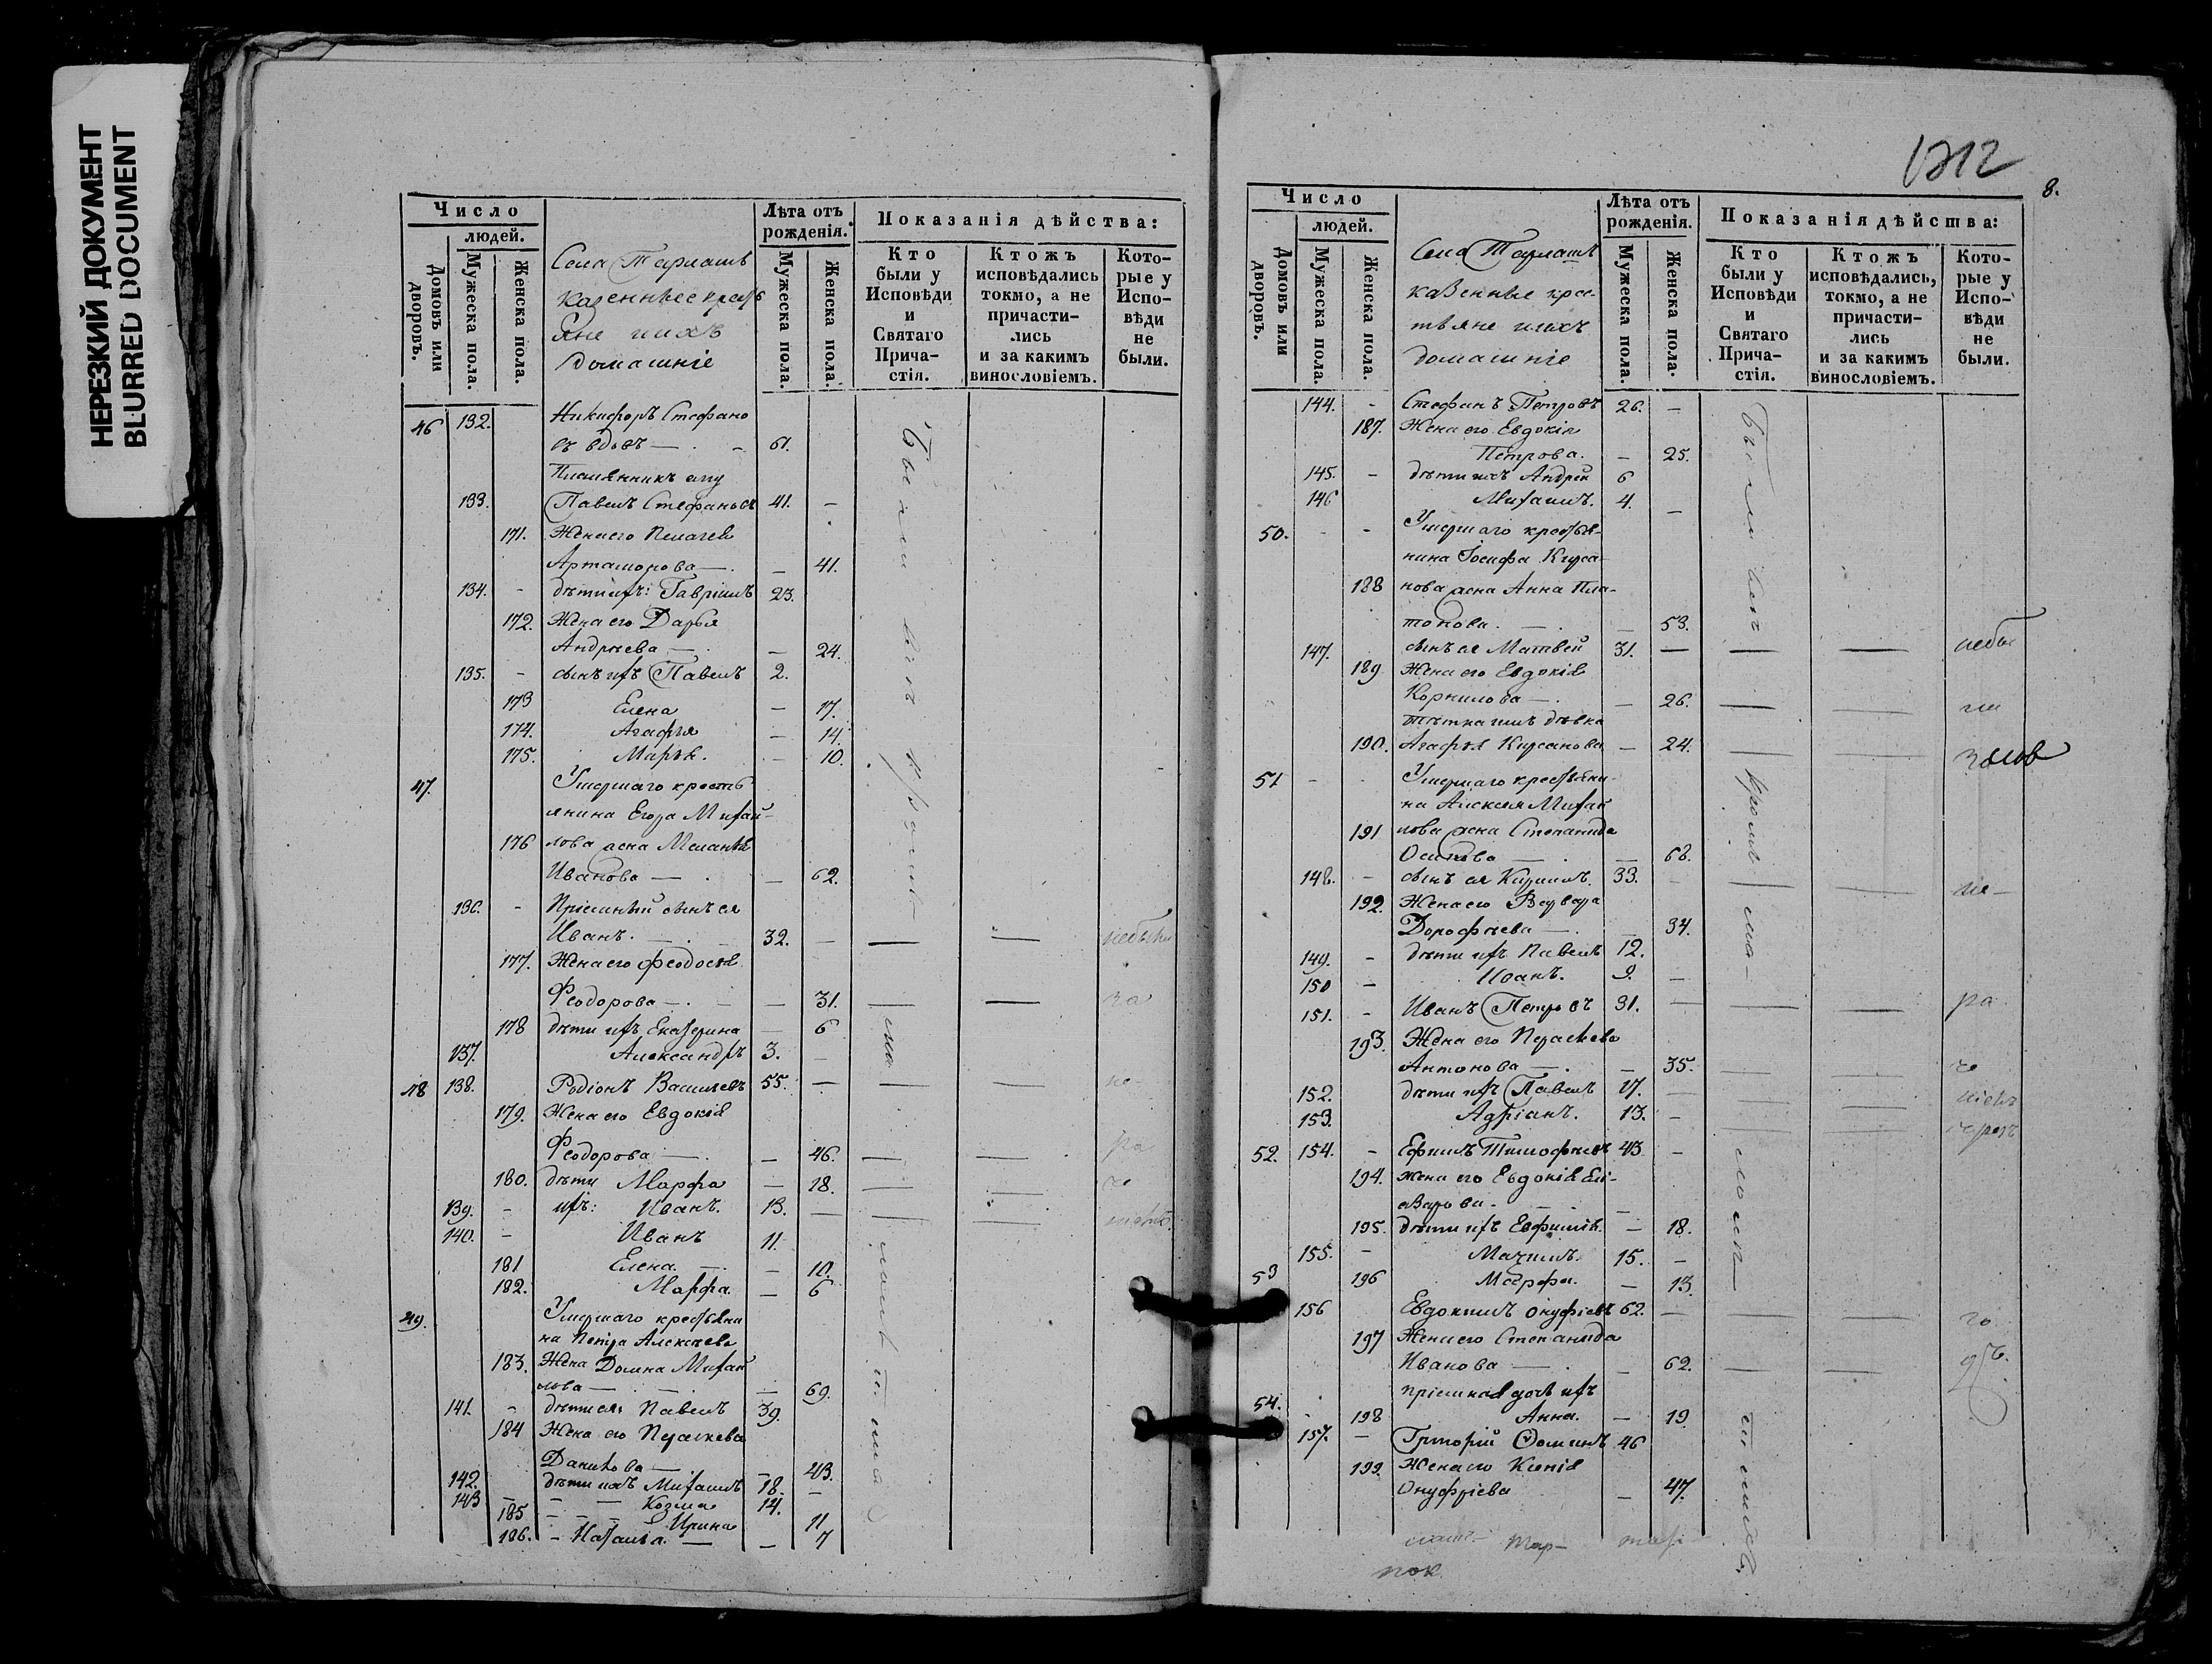 НЕРЕЗКИЙ ДОКУМЕНТ
BLURRED DOCUMENT
Число
людей.
Домовъ или дворовъ.
Мужеска пола.
Женска пола.
Села
казенные крест
яне ихъ
домашніе
Лѣта отъ рожденія.
Мужеска пола.
Женска пола.
Показанія дѣйства:
Кто были у Исповѣди и Святаго Прича-стія.
Ктожъ исповѣдались токмо, а не причасти-лись и за какимъ винословіемъ.
Кото-рые у Испо-вѣди не были.
46 132. Никифоръ Стефано
въ вдовъ — 61.
Племянникъ ему
133. Павелъ Стефановъ 41. —
171. Жена его Пелагея
Артамонова — — 41.
134. - дѣти ихъ: Гавріилъ 23.
172. Жена его Дарья
Андреева — — 24.
135. - сынъ ихъ Павелъ 2.
173 Елена — 17.
174. Агафья — 14.
175. Марья. — 10.
47. Умершаго кресть
янина Егора Михай-
176 лова жена Меланья
Иванова — — 62.
136. - Пріемный сынъ ея
Иванъ. — 32. — — — небыли
177. Жена его Феодосья
Феодорова — — 31. — — за
178 дѣти ихъ Екатерина — 6
137. Александръ 3. —
48 138. Родіонъ Васильевъ 55. — — не-
179. Жена его Евдокія
Феодорова — — 46. — — ра
180. дѣти Марфа — 18. — — че
139. - ихъ: Иванъ. 13. — — —
140. - Иванъ 11.
181 Елена. — — 10.
182. Марфа. — 6
49. Умершаго крестьяни
на Петра Алексѣева
183. Жена Домна Михай
лова — — 69.
141. - дѣти ея Павелъ 39.
184 Жена его Параскева
Данилова — — 43.
142. дѣти ихъ Михаилъ 18. —
143 — — Козма 14.
185 — — Ирина 11
186. - Наталья — — 7
Были
1312
8.
Число
людей.
Домовъ или дворовъ.
Мужеска пола.
Женска пола.
Села
казенные крес-
тьяне ихъ
домашніе
Лѣта отъ рожденія.
Мужеска пола.
Женска пола.
Показанія дѣйства:
Кто были у Исповѣди и Святаго Прича-стія.
Ктожъ исповѣдались, токмо, а не причасти-лись и за какимъ винословіемъ.
Кото-рые у Испо-вѣди не были.
144. - Стефанъ Петровъ 26. —
187. Жена его Евдокія
Петрова. — 25.
145. - дѣти ихъ Андрей 6
146 Михаилъ. 4. —
50. - - Умершаго крестья-
нина Іосифа Кирса-
188 нова жена Анна Пла-
тонова. — — 53.
147. сынъ ея Матвей 31. — — — небы
189 Жена его Евдокія
Корнилова — — 26. — — ли
дѣвка
190. Агафья Кирсанова — 24. — —
51 - - Умершаго крестьяни-
на Алексея Михай
191 лова жена Степанида
Осипова — — 68.
148. - сынъ ея Кириллъ. 33. — — — не-
192. Жена его Варвара
Дорофеева — — 34.
149. - дѣти ихъ Павелъ 12.
150 - Иванъ. 9. —
151. - Иванъ Петровъ 31. — — — ра
193. Жена его Параскева
Антонова — — 35. — — че
152. дѣти ихъ Павелъ 17. — — —
153. Адріанъ. 13. — — —
52. 154. - Ефимъ Тимофеевъ 43 —
194. жена его Евдокія Ел-
еазарова. — —
195. дѣти ихъ Евфимія. — 18.
155. - Максимъ. 15. —
53 196 Марфа. — 13.
156 Евдокимъ Онуфріевъ 62. — — — го
197 Жена его Степанида
Иванова — — 62. — —
пріемная дочь ихъ
54. 198 Анна. — 19
157. - Григорій Ѳоминъ 46
199. Жена его Ксенія
Онуфріева — 47.
Были
кромѣ